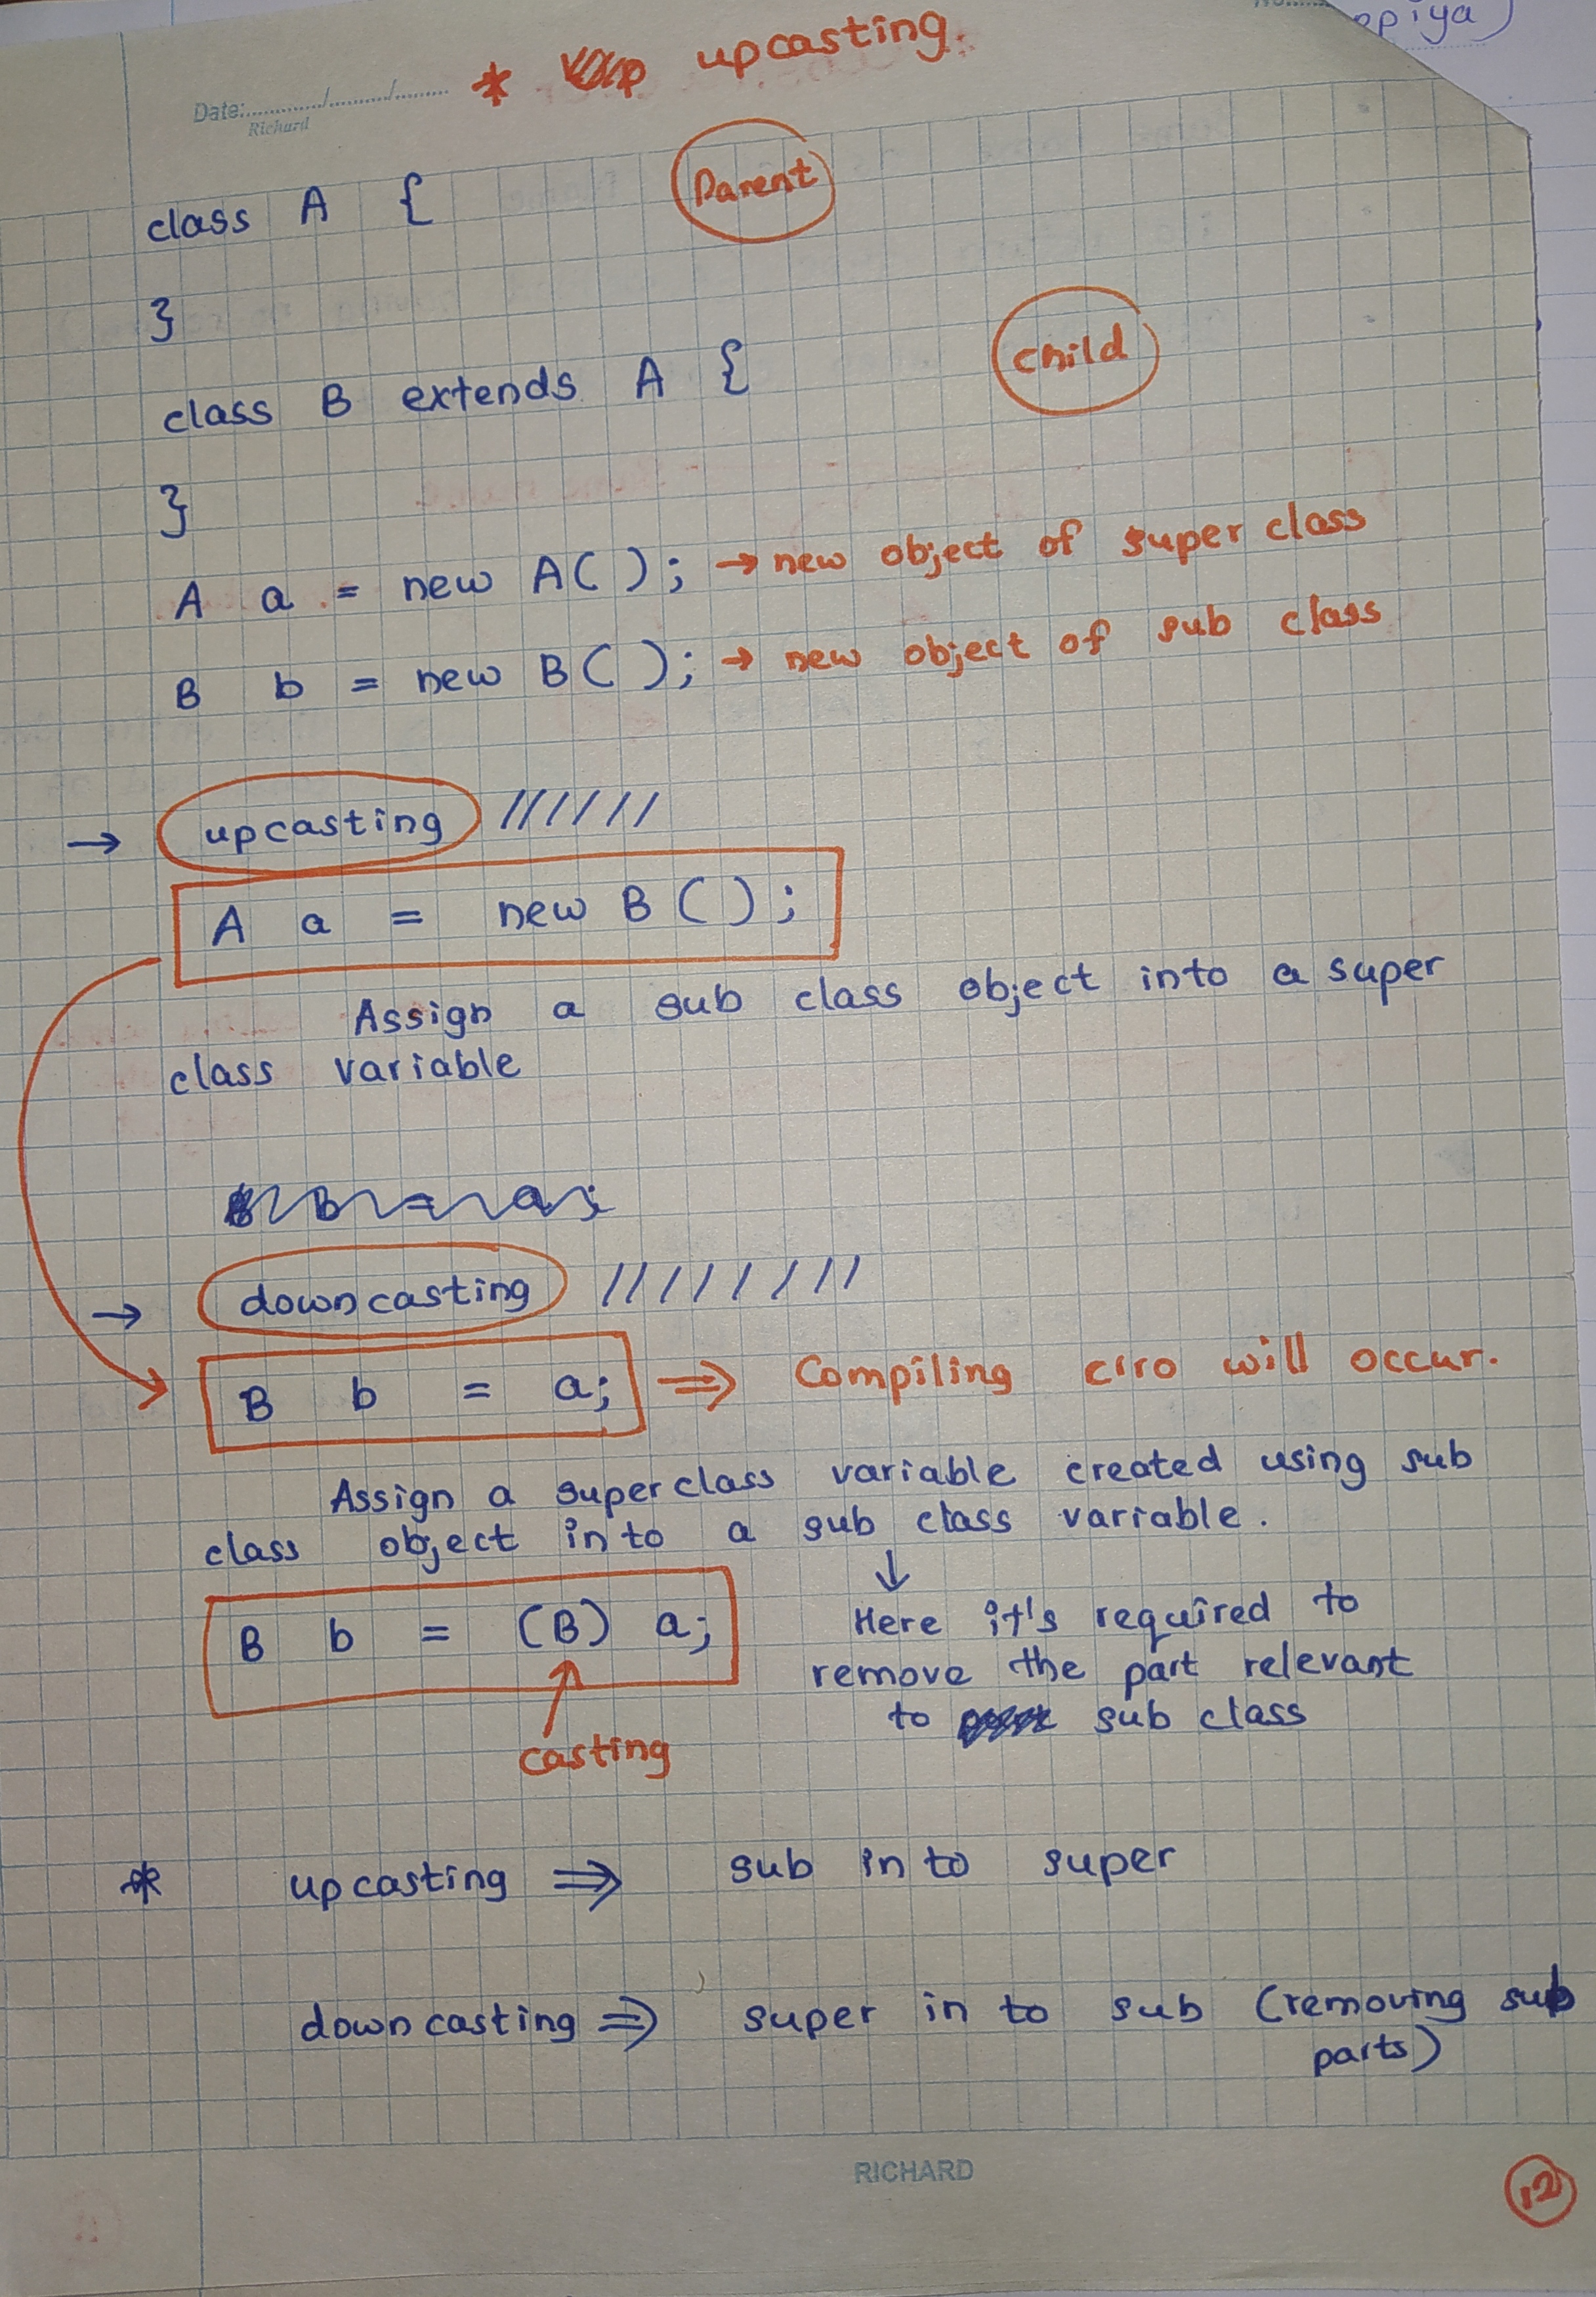 opiya)
* upcasting.
Date:............/.........../.........
Richard
class A { Parent
}
class B extends A { child
}
A a = new A( ); → new object of super class
B b = new B( ); → new object of sub class
→ upcasting //////
A a = new B ( ) ;
Assign a sub class object into a super
class variable
B b = a;
→ downcasting ////////
B b = a; ⇒ Compiling erro will occur.
Assign a superclass variable created using sub
class object in to a sub class variable.
↓
B b = (B) a; Here it's required to
remove the part relevant
to sub class
casting
* upcasting ⇒ sub in to super
down casting ⇒ super in to sub (removing sub
parts)
RICHARD
12